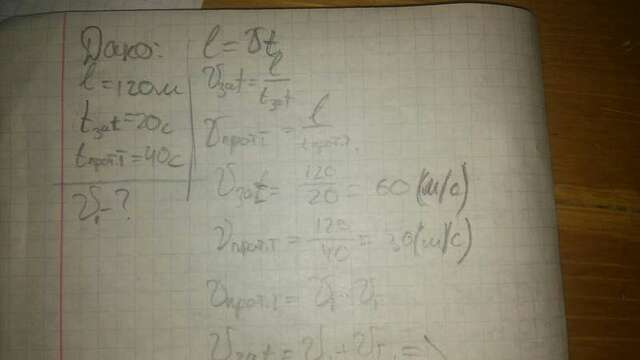 Дано:
l=120м
t зат=20с
t прот.т=40с
l=vt
v зат=l/t зат
v прот.т=l/t прот.т.
v зат=120/20=60(м/с)
v прот.т=120/40=30(м/с)
v прот.т=
v зат=